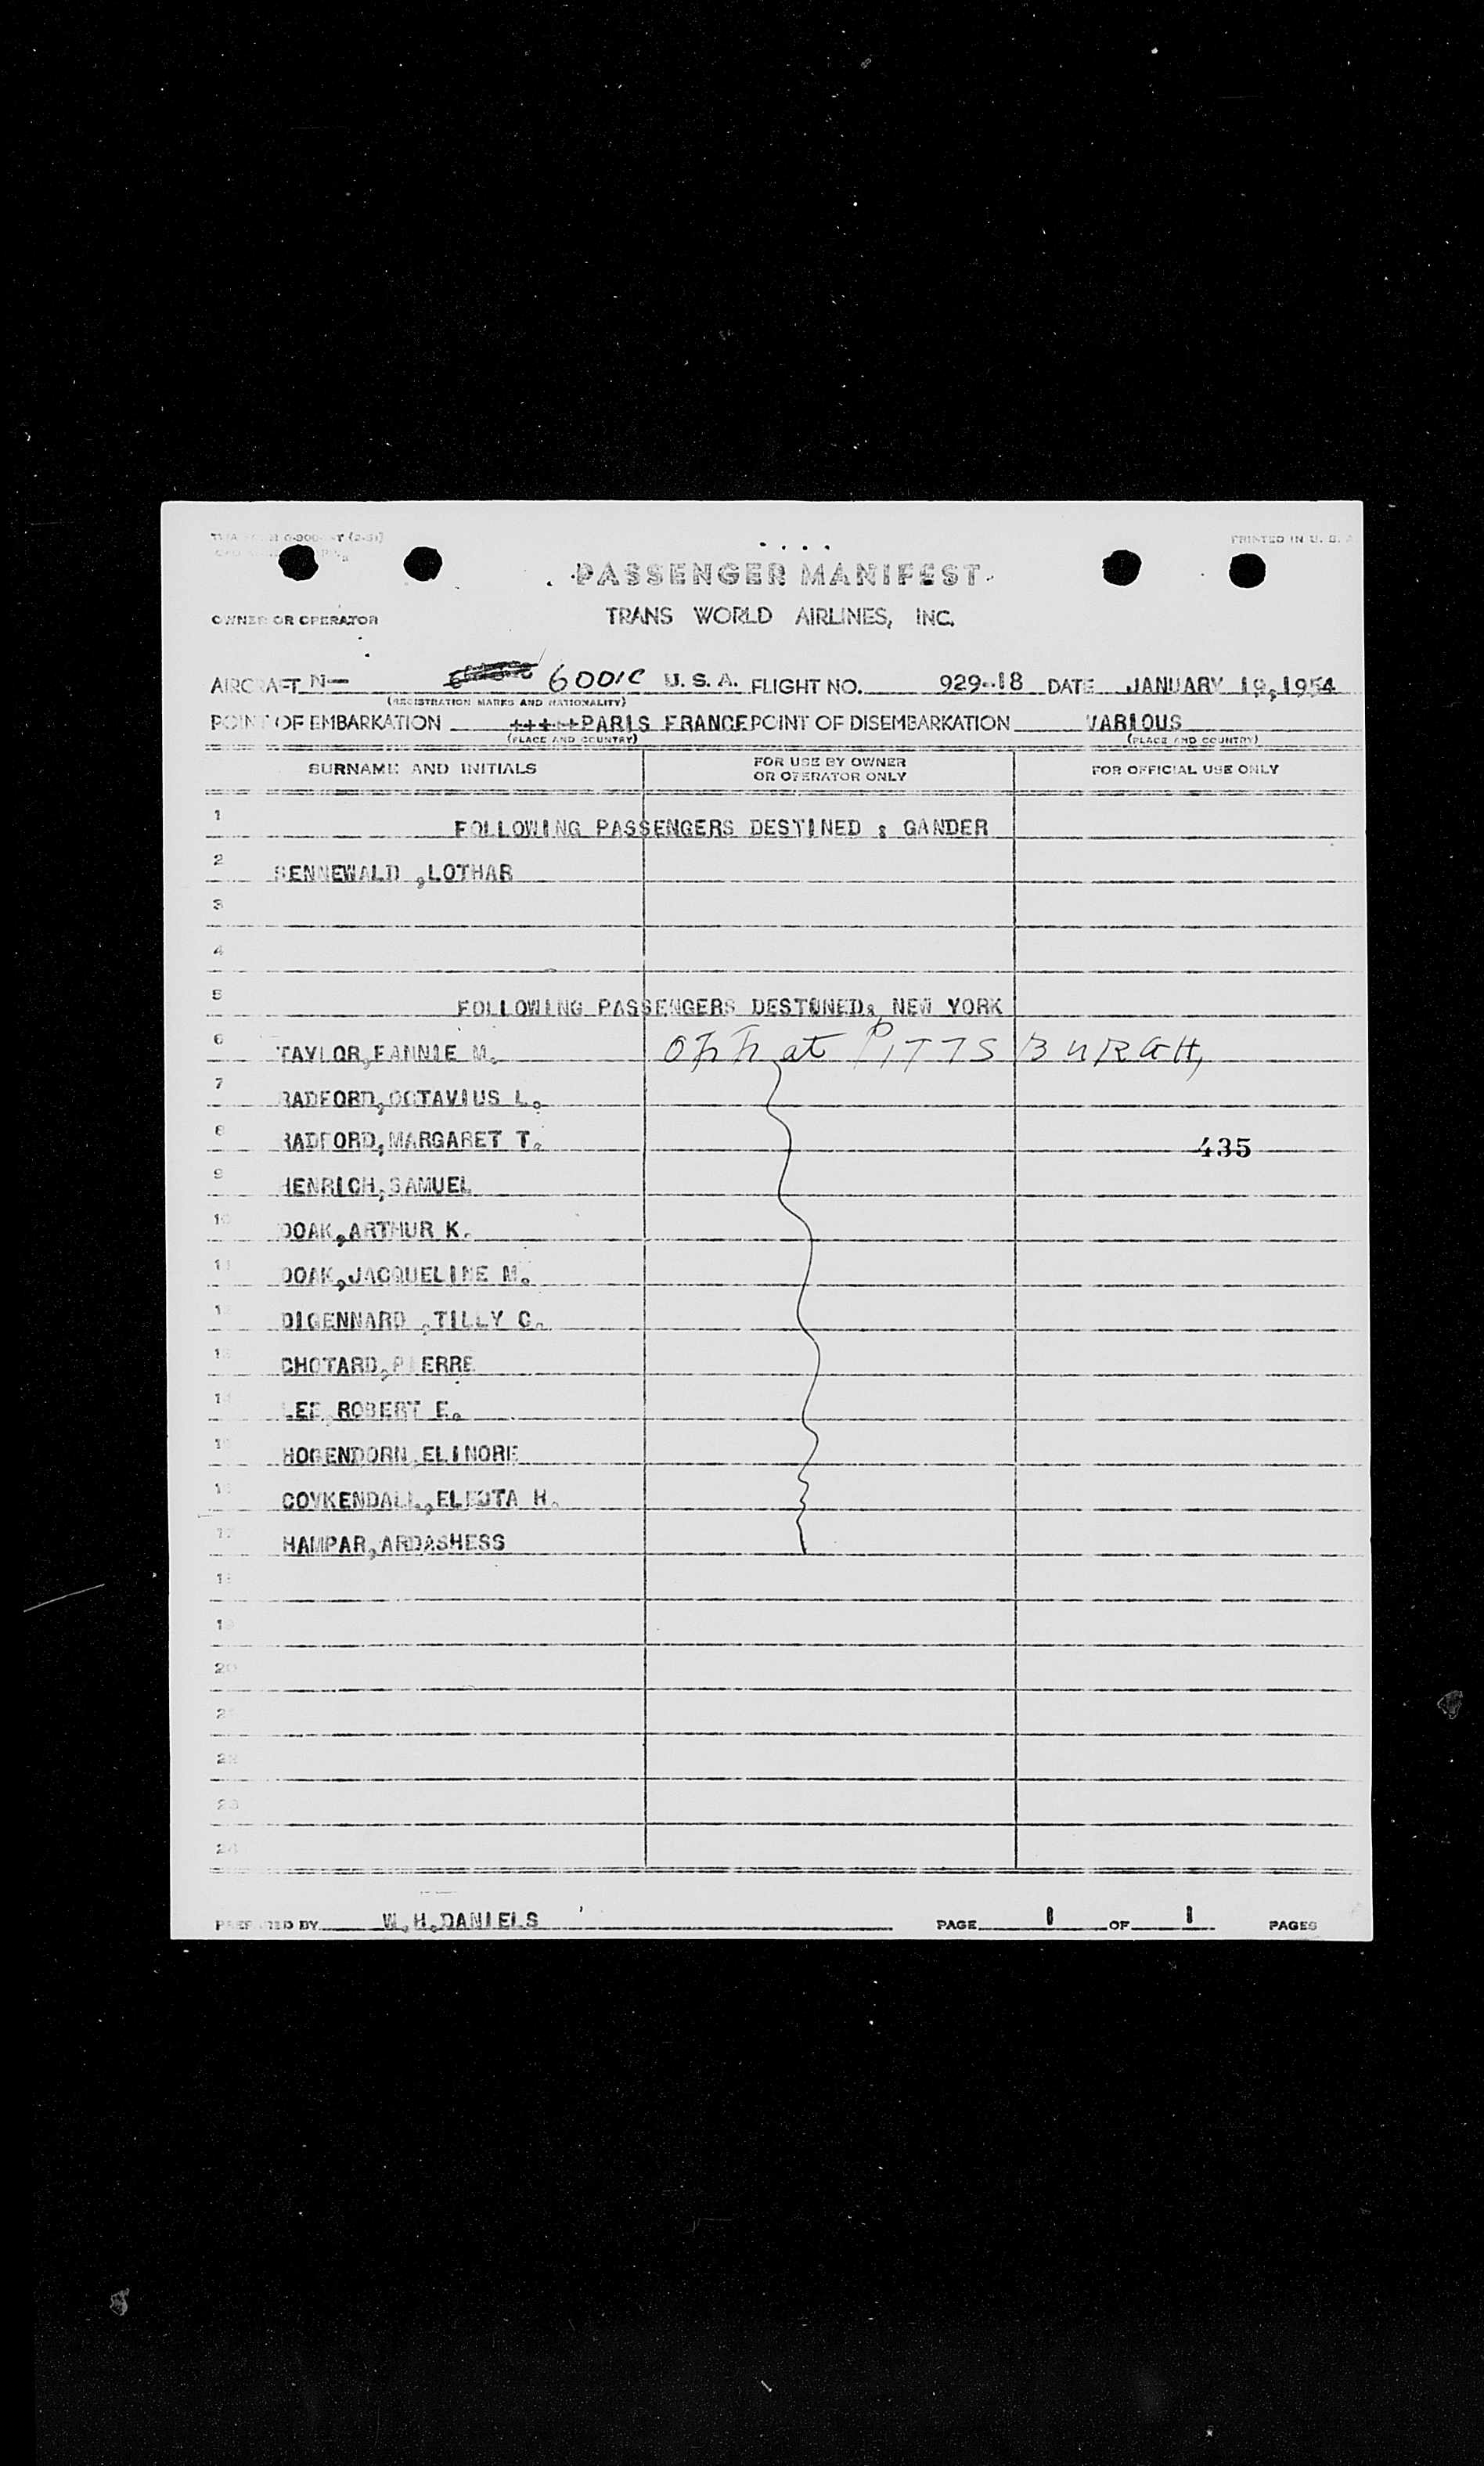 PRINTED IN U. S. A
PASSENGER MANIFEST
OWNER OR OPERATOR TRANS WORLD AIRLINES, INC.
AIRCRAFT N— 6001C U. S. A. FLIGHT NO. 929-18 DATE JANUARY 19, 1954
(REGISTRATION MARKS AND NATIONALITY)
POINT OF EMBARKATION +++++PARIS FRANCE POINT OF DISEMBARKATION VARIOUS
(PLACE AND COUNTRY) (PLACE AND COUNTRY)
SURNAME AND INITIALS FOR USE BY OWNER OR OPERATOR ONLY FOR OFFICIAL USE ONLY
1 FOLLOWING PASSENGERS DESTINED : GANDER
2 SENNEWALD ,LOTHAR
3
4
5 FOLLOWING PASSENGERS DESTINED: NEW YORK
6 TAYLOR,FANNIE M. Off at PITTSBURGH,
7 RADFORD,OCTAVIUS L.
8 RADFORD,MARGARET T. 435
9 HENRICH,SAMUEL
10 DOAK,ARTHUR K.
11 DOAK,JACQUELINE M.
12 DIGENNARO ,TILLY C.
13 CHOTARD,PIERRE
14 LEE,ROBERT E.
15 HOGENDORN,ELINORE
16 COYKENDALL,ELEOTA H.
17 HAMPAR,ARDASHESS
18
19
20
21
22
23
24
PREPARED BY W.H.DANIELS PAGE 1 OF 1 PAGES